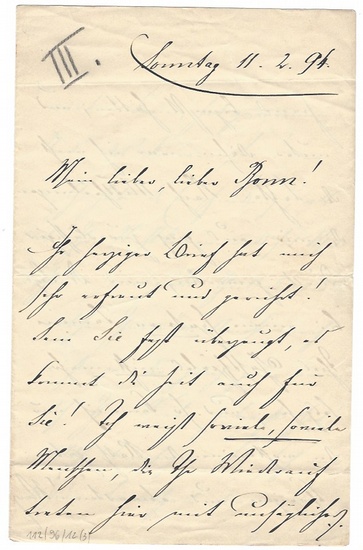 III.
Sonntag 11. 2. 94.
Mein lieber, lieber Bonn!
Ihr herziger Brief hat mich
sehr erfreut und gerührt!
Sein Sie fest überzeugt, es
kommt die Zeit auch für
Sie! Ich weiß soviele, soviele
Menschen, die Ihr Wiederauf
treten hier mit
112/96/12/3